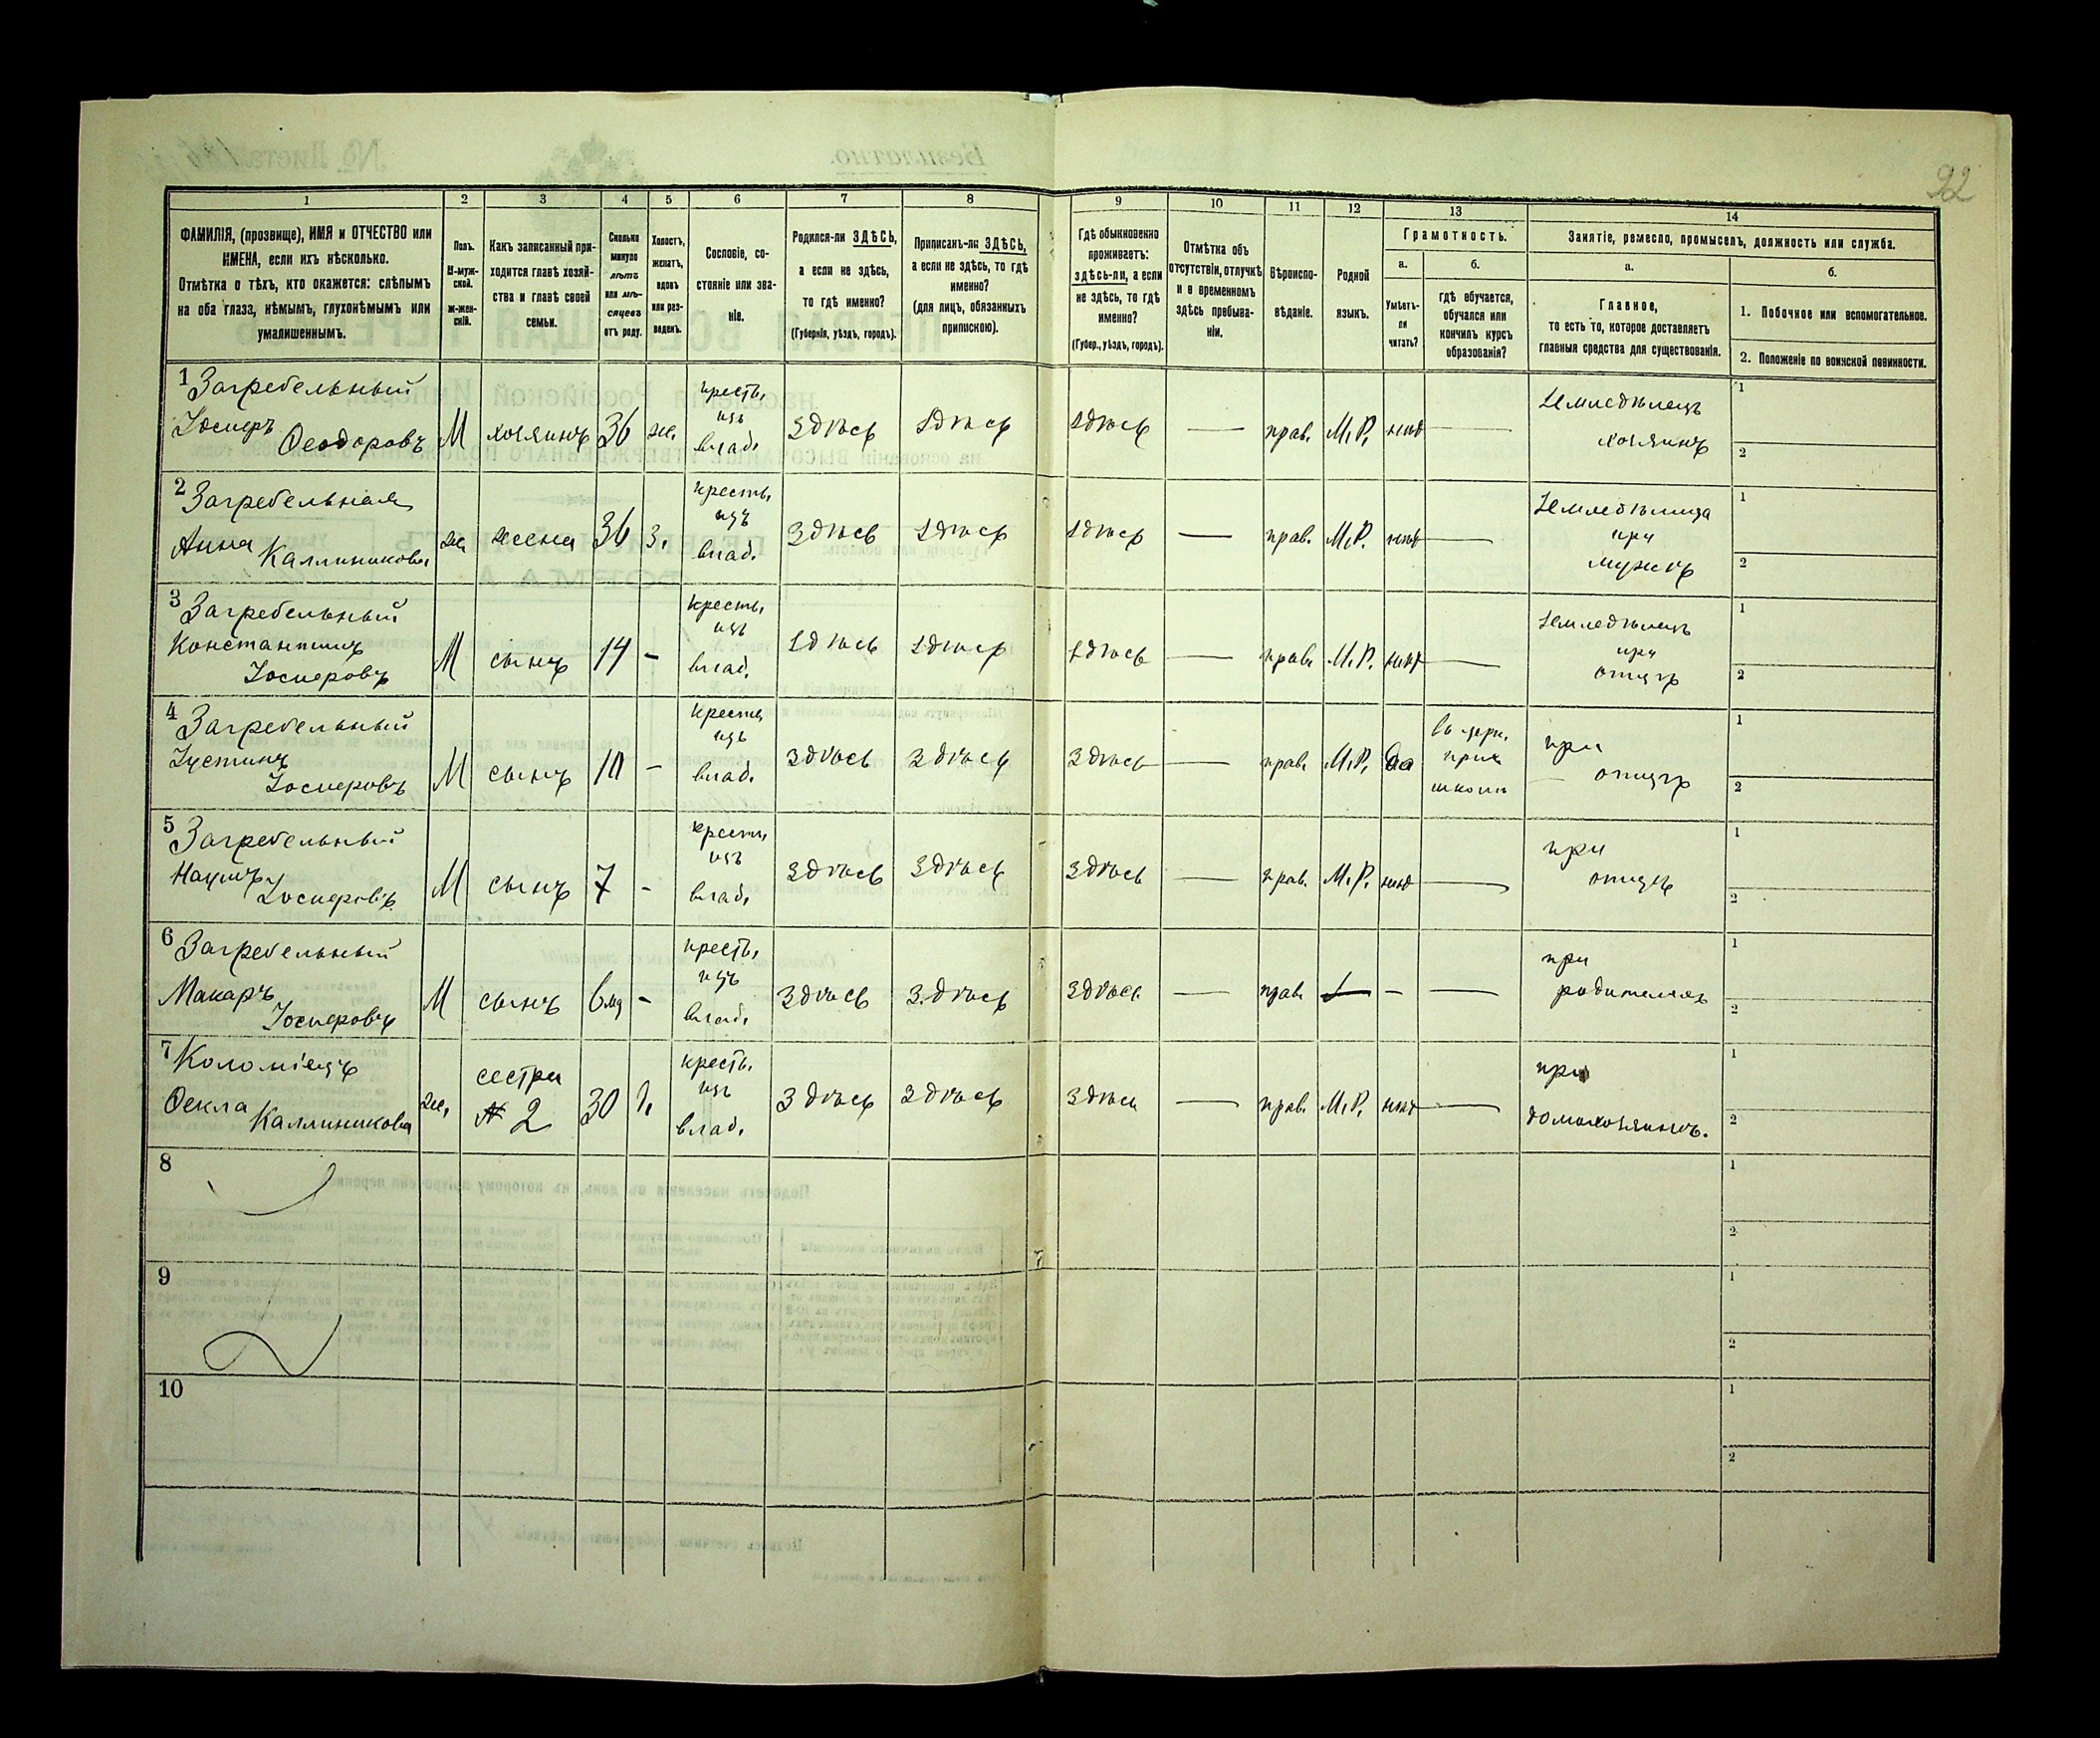 22
1 2 3 4 5 6 7 8 9 10 11 12 13 14
ФАМИЛІЯ, (прозвище), ИМЯ и ОТЧЕСТВО или
ИМЕНА, если ихъ нѣсколько.
Отмѣтка о тѣхъ, кто окажется: слѣпымъ
на оба глаза, нѣмымъ, глухонѣмымъ или
умалишеннымъ.
Полъ.
М-муж-
ской.
ж-жен-
скій.
Какъ записанный при-
ходится главѣ хозяй-
ства и главѣ своей
семьи.
Сколько
минуло
лѣтъ
или мѣ-
сяцевъ
отъ роду.
Холостъ,
женатъ,
вдовъ
или раз-
веденъ.
Сословіе, со-
стояніе или зва-
ніе.
Родился-ли ЗДѢСЬ,
а если не здѣсь,
то гдѣ именно?
(Губернія, уѣздъ, городъ).
Приписанъ-ли ЗДѢСЬ,
а если не здѣсь, то гдѣ
именно?
(для лицъ, обязанныхъ
припискою).
Гдѣ обыкновенно
проживаетъ:
здѣсь-ли, а если
не здѣсь, то гдѣ
именно?
(Губер., уѣздъ, городъ).
Отмѣтка объ
отсутствіи, отлучкѣ
и о временномъ
здѣсь пребыва-
ніи.
Вѣроиспо-
вѣданіе.
Родной
языкъ.
Грамотность.
а.
Умѣетъ-
ли
читать?
б.
гдѣ обучается,
обучался или
кончилъ курсъ
образованія?
Занятіе, ремесло, промыселъ, должность или служба.
а.
Главное,
то есть то, которое доставляетъ
главныя средства для существованія.
б.
1. Побочное или вспомогательное.
2. Положеніе по воинской повинности.
1 Загребельный
Іосифъ
Ѳеодоровъ М хозяинъ 36 же. крест. изъ влад. здѣсь здѣсь здѣсь — прав. М.Р. нѣтъ — Земледѣлецъ хозяинъ 1 2
2 Загребельная
Анна
Каллиникова же. жена 36 з. крест. изъ влад. здѣсь здѣсь здѣсь — прав. М.Р. нѣтъ — Земледѣлица при мужѣ 1 2
3 Загребельный
Константинъ
Іосифовъ М сынъ 14 - крест. изъ влад. здѣсь здѣсь здѣсь — прав. М.Р. нѣтъ — Земледѣлецъ при отцѣ 1 2
4 Загребельный
Іустинъ
Іосифовъ М сынъ 10 - крест. изъ влад. здѣсь здѣсь здѣсь — прав. М.Р. да въ церк. прих. школѣ при отцѣ 1 2
5 Загребельный
Наумъ
Іосифовъ М сынъ 7 - крест. изъ влад. здѣсь здѣсь здѣсь — прав. М.Р. нѣтъ — при отцѣ 1 2
6 Загребельный
Макаръ
Іосифовъ М сынъ 6 мѣ - крест. изъ влад. здѣсь здѣсь здѣсь — прав. — - — при родителяхъ 1 2
7 Коломіецъ
Ѳекла
Каллиникова же. сестра № 2 30 д. крест. изъ влад. здѣсь здѣсь здѣсь — прав. М.Р. нѣтъ — при домохозяинѣ. 1 2
8 1 2
9 1 2
10 1 2